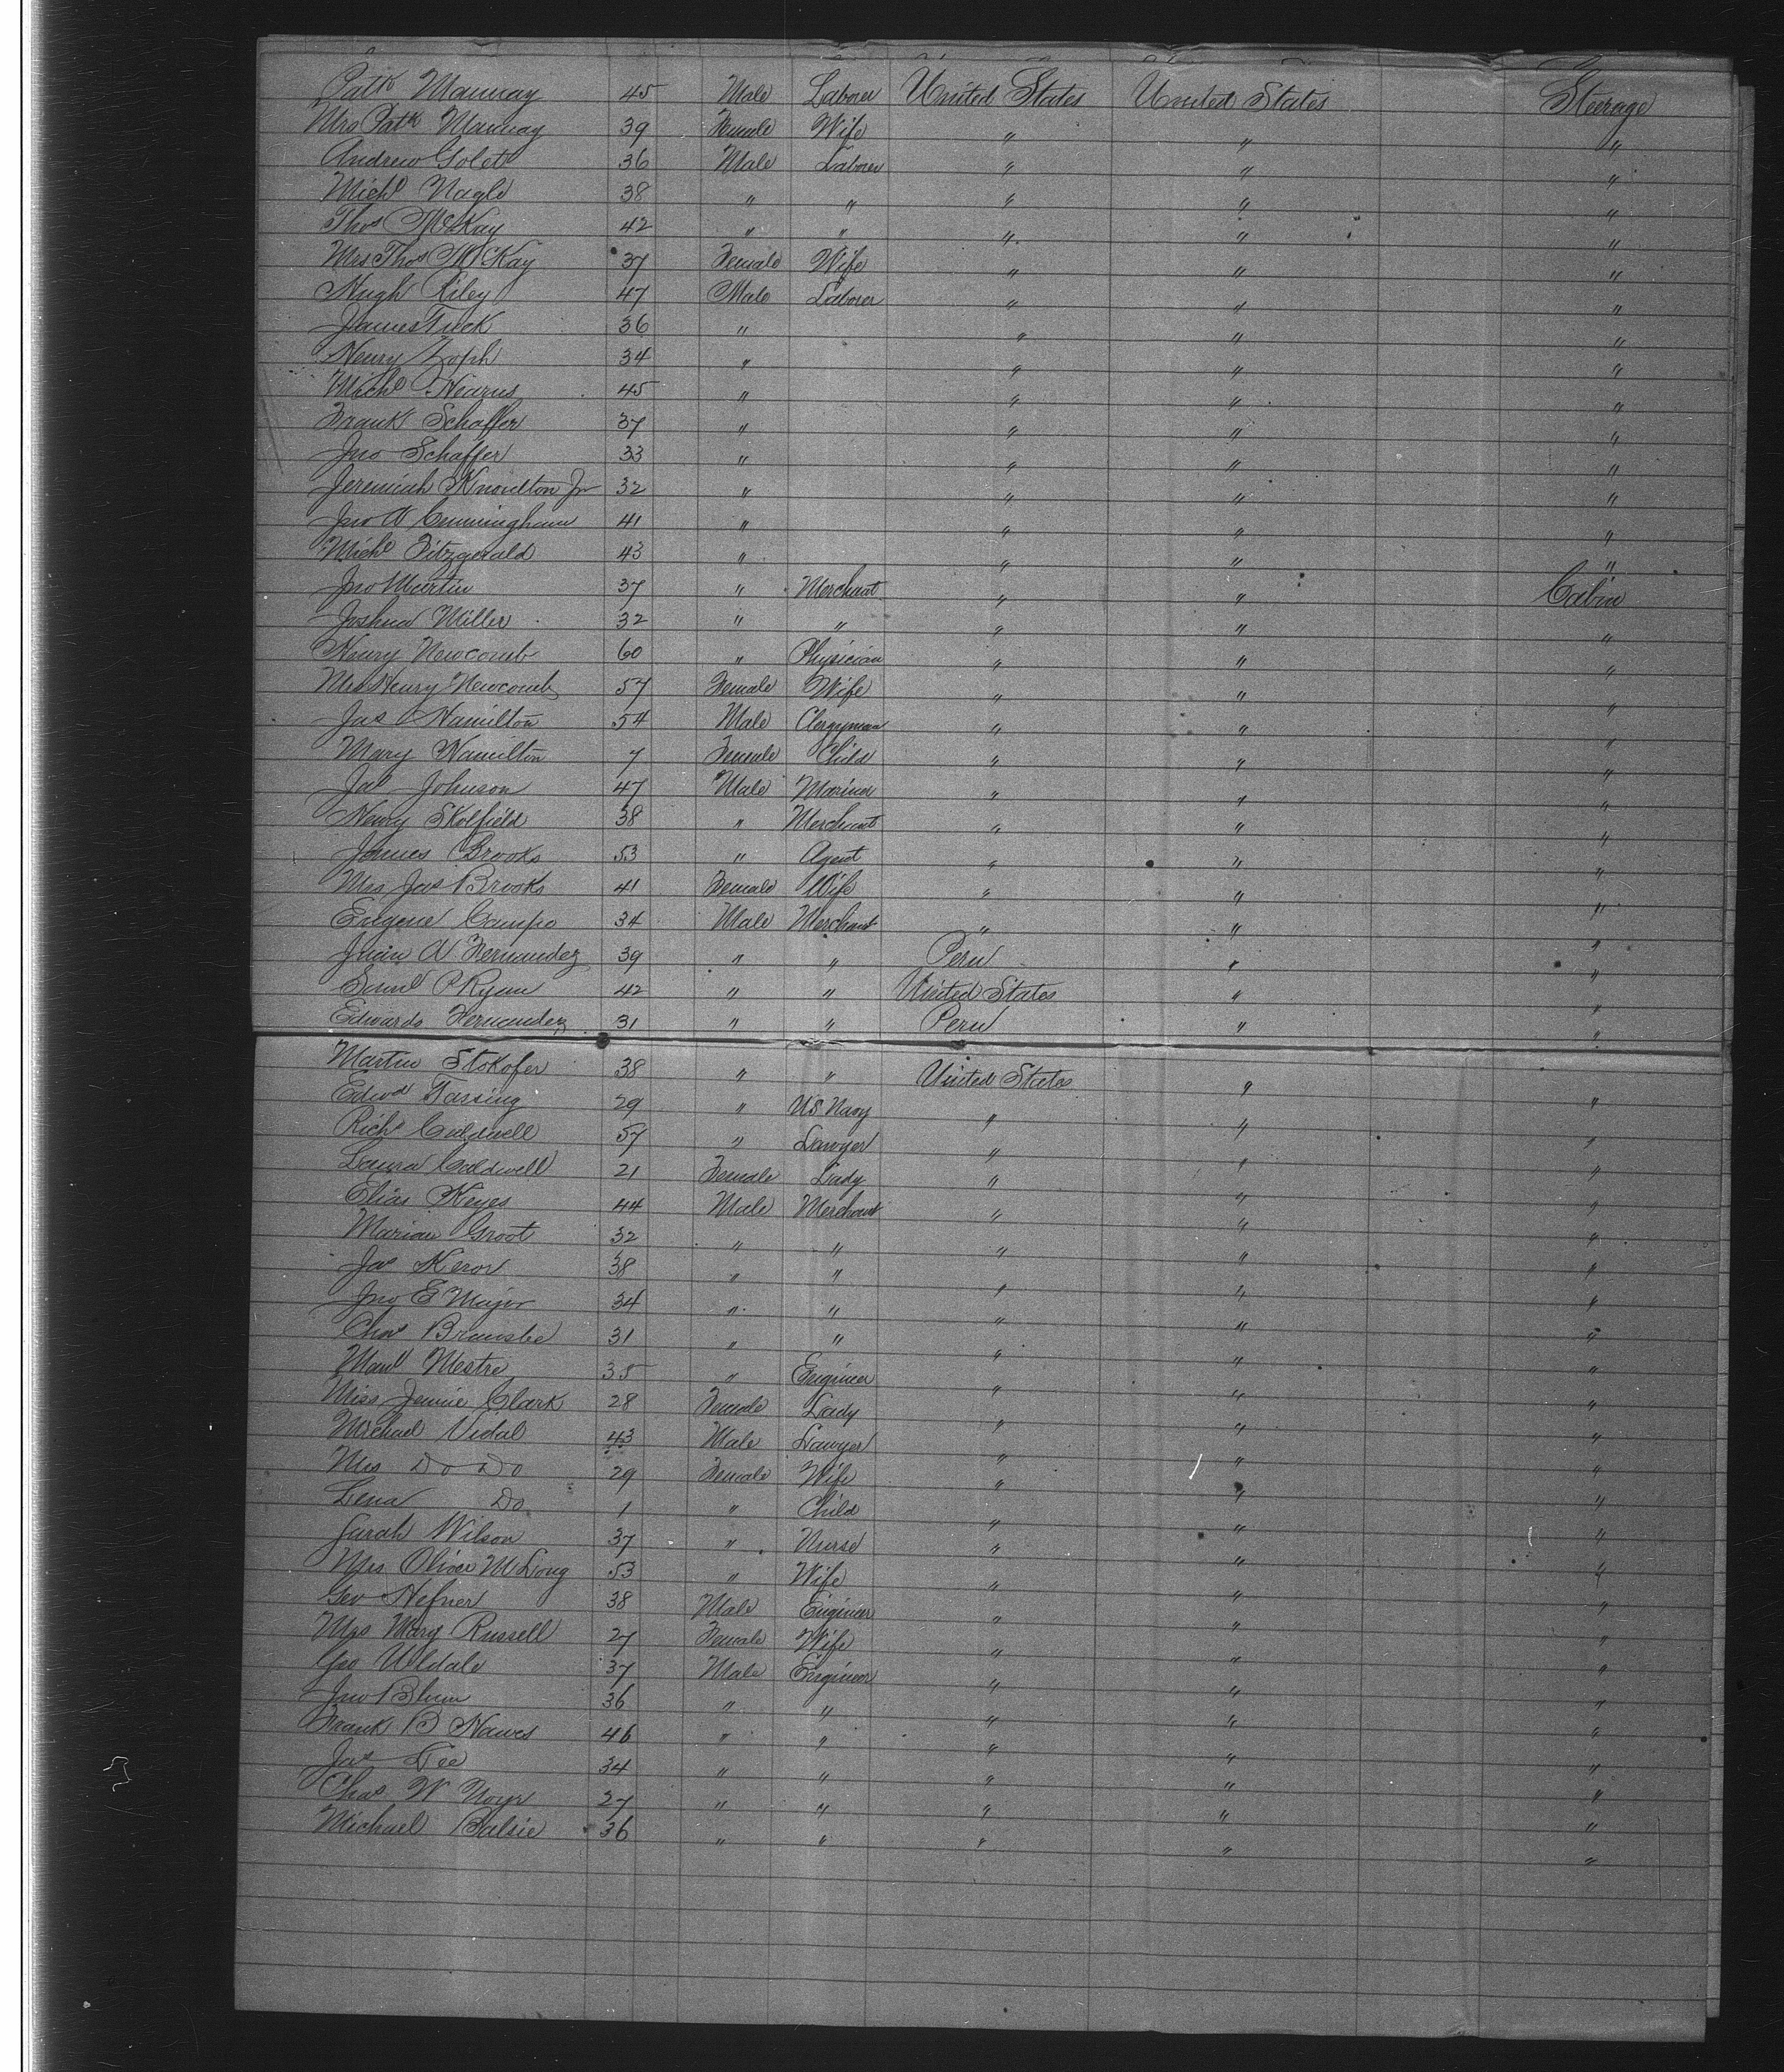 Patk Mannay 45 Male Laborer United States United States Steerage
Mrs Patk Mannay 39 Female Wife " " "
Andrew Golet 36 Male Laborer " " "
Michl Nagle 38 " " " " "
Thos McKay 42 " " " " "
Mrs Thos McKay 37 Female Wife " " "
Hugh Riley 47 Male Laborer " " "
James Tuck 36 " " " "
Henry Zoph 34 " " " "
Michl Nearns 45 " " " "
Frank Schaffer 37 " " " "
Jno Schaffer 33 " " " "
Jeremiah Knowlton Jr 32 " " " "
Jno A Cunningham 41 " " " "
Michl Fitzgerald 43 " " " "
Jno Martin 37 " Merchant " " Cabin
Joshua Miller 32 " " " " "
Henry Newcomb 60 " Physician " " "
Mrs Henry Newcomb 57 Female Wife " " "
Jas Hamilton 54 Male Clergyman " " "
Mary Hamilton 7 Female Child " " "
Jas Johnson 47 Male Mariner " " "
Henry Skolfield 38 " Merchant " " "
James Brooks 53 " Agent " " "
Mrs Jas Brooks 41 Female Wife " " "
Eugene Campo 34 Male Merchant " " "
Juan A Hernandez 39 " " Peru " "
Saml P Ryan 42 " " United States " "
Edwardo Hernandez 31 " " Peru " "
Martin Stokofer 38 " " United States " "
Edwd Tassing 29 " US Navy " " "
Richd Caldwell 57 " Lawyer " " "
Laura Caldwell 21 Female Lady " " "
Elias Keyes 44 Male Merchant " " "
Marian Groot 32 " " " " "
Jas Keron 38 " " " " "
Jno E Major 34 " " " " "
Chas 31 " " " " "
Manl Mestre 35 " Engineer " " "
Miss Jennie Clark 28 Female Lady " " "
Michael Vidal 43 Male Lawyer " " "
Mrs Do Do 29 Female Wife " " "
Lena Do 1 " Child " " "
Sarah Wilson 37 " Nurse " " "
Mrs Oliver M Long 53 " Wife " " "
Geo Hefner 38 Male Engineer " " "
Mrs Mary Russell 27 Female Wife " " "
Geo Uldale 37 Male Engineer " " "
Jno Blum 36 " " " " "
Frank B Hawes 46 " " " " "
Jas Lee 34 " " " " "
Chas W 27 " " " " "
Michael Balsie 36 " " " " "